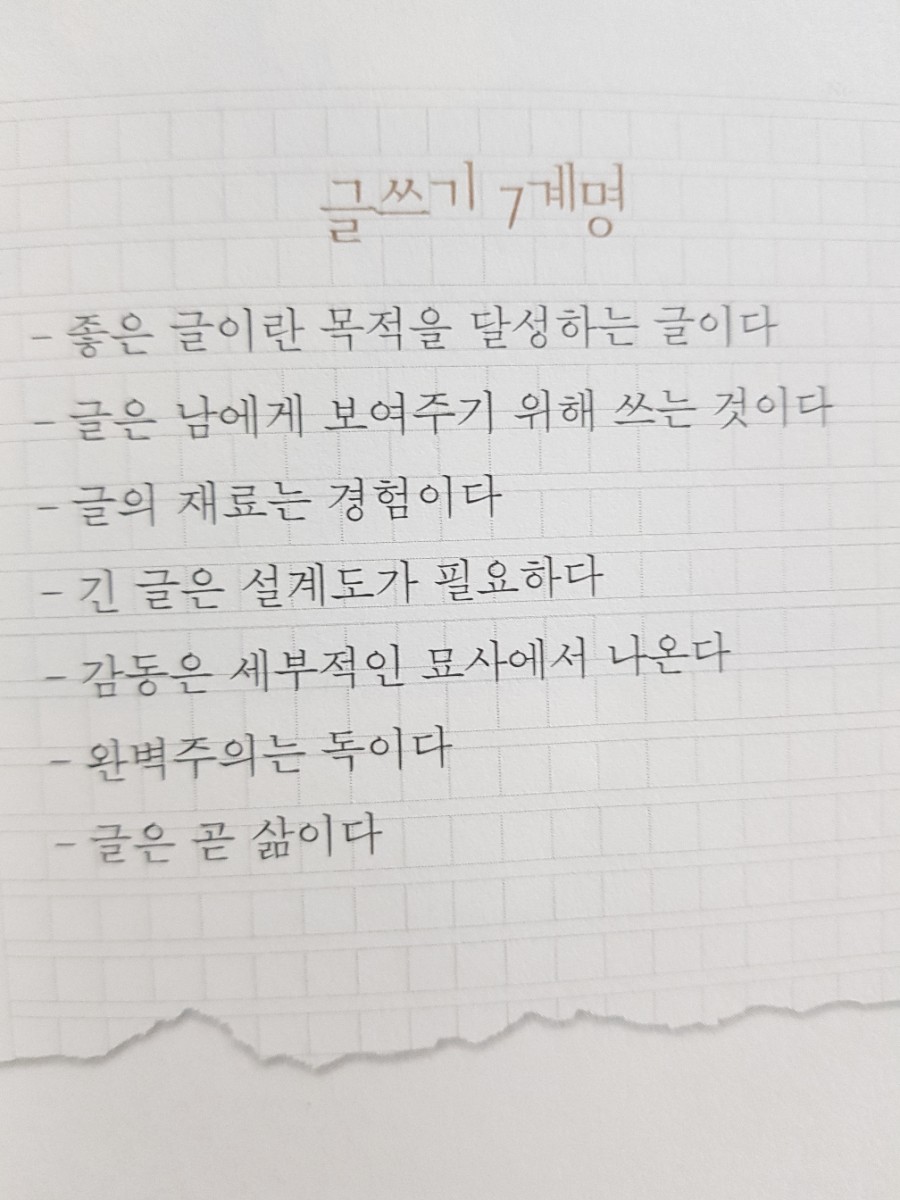 글쓰기 7계명
- 좋은 글이란 목적을 달성하는 글이다
- 글은 남에게 보여주기 위해 쓰는 것이다
- 글의 재료는 경험이다
- 긴 글은 설계도가 필요하다
- 감동은 세부적인 묘사에서 나온다
- 완벽주의는 독이다
- 글은 곧 삶이다